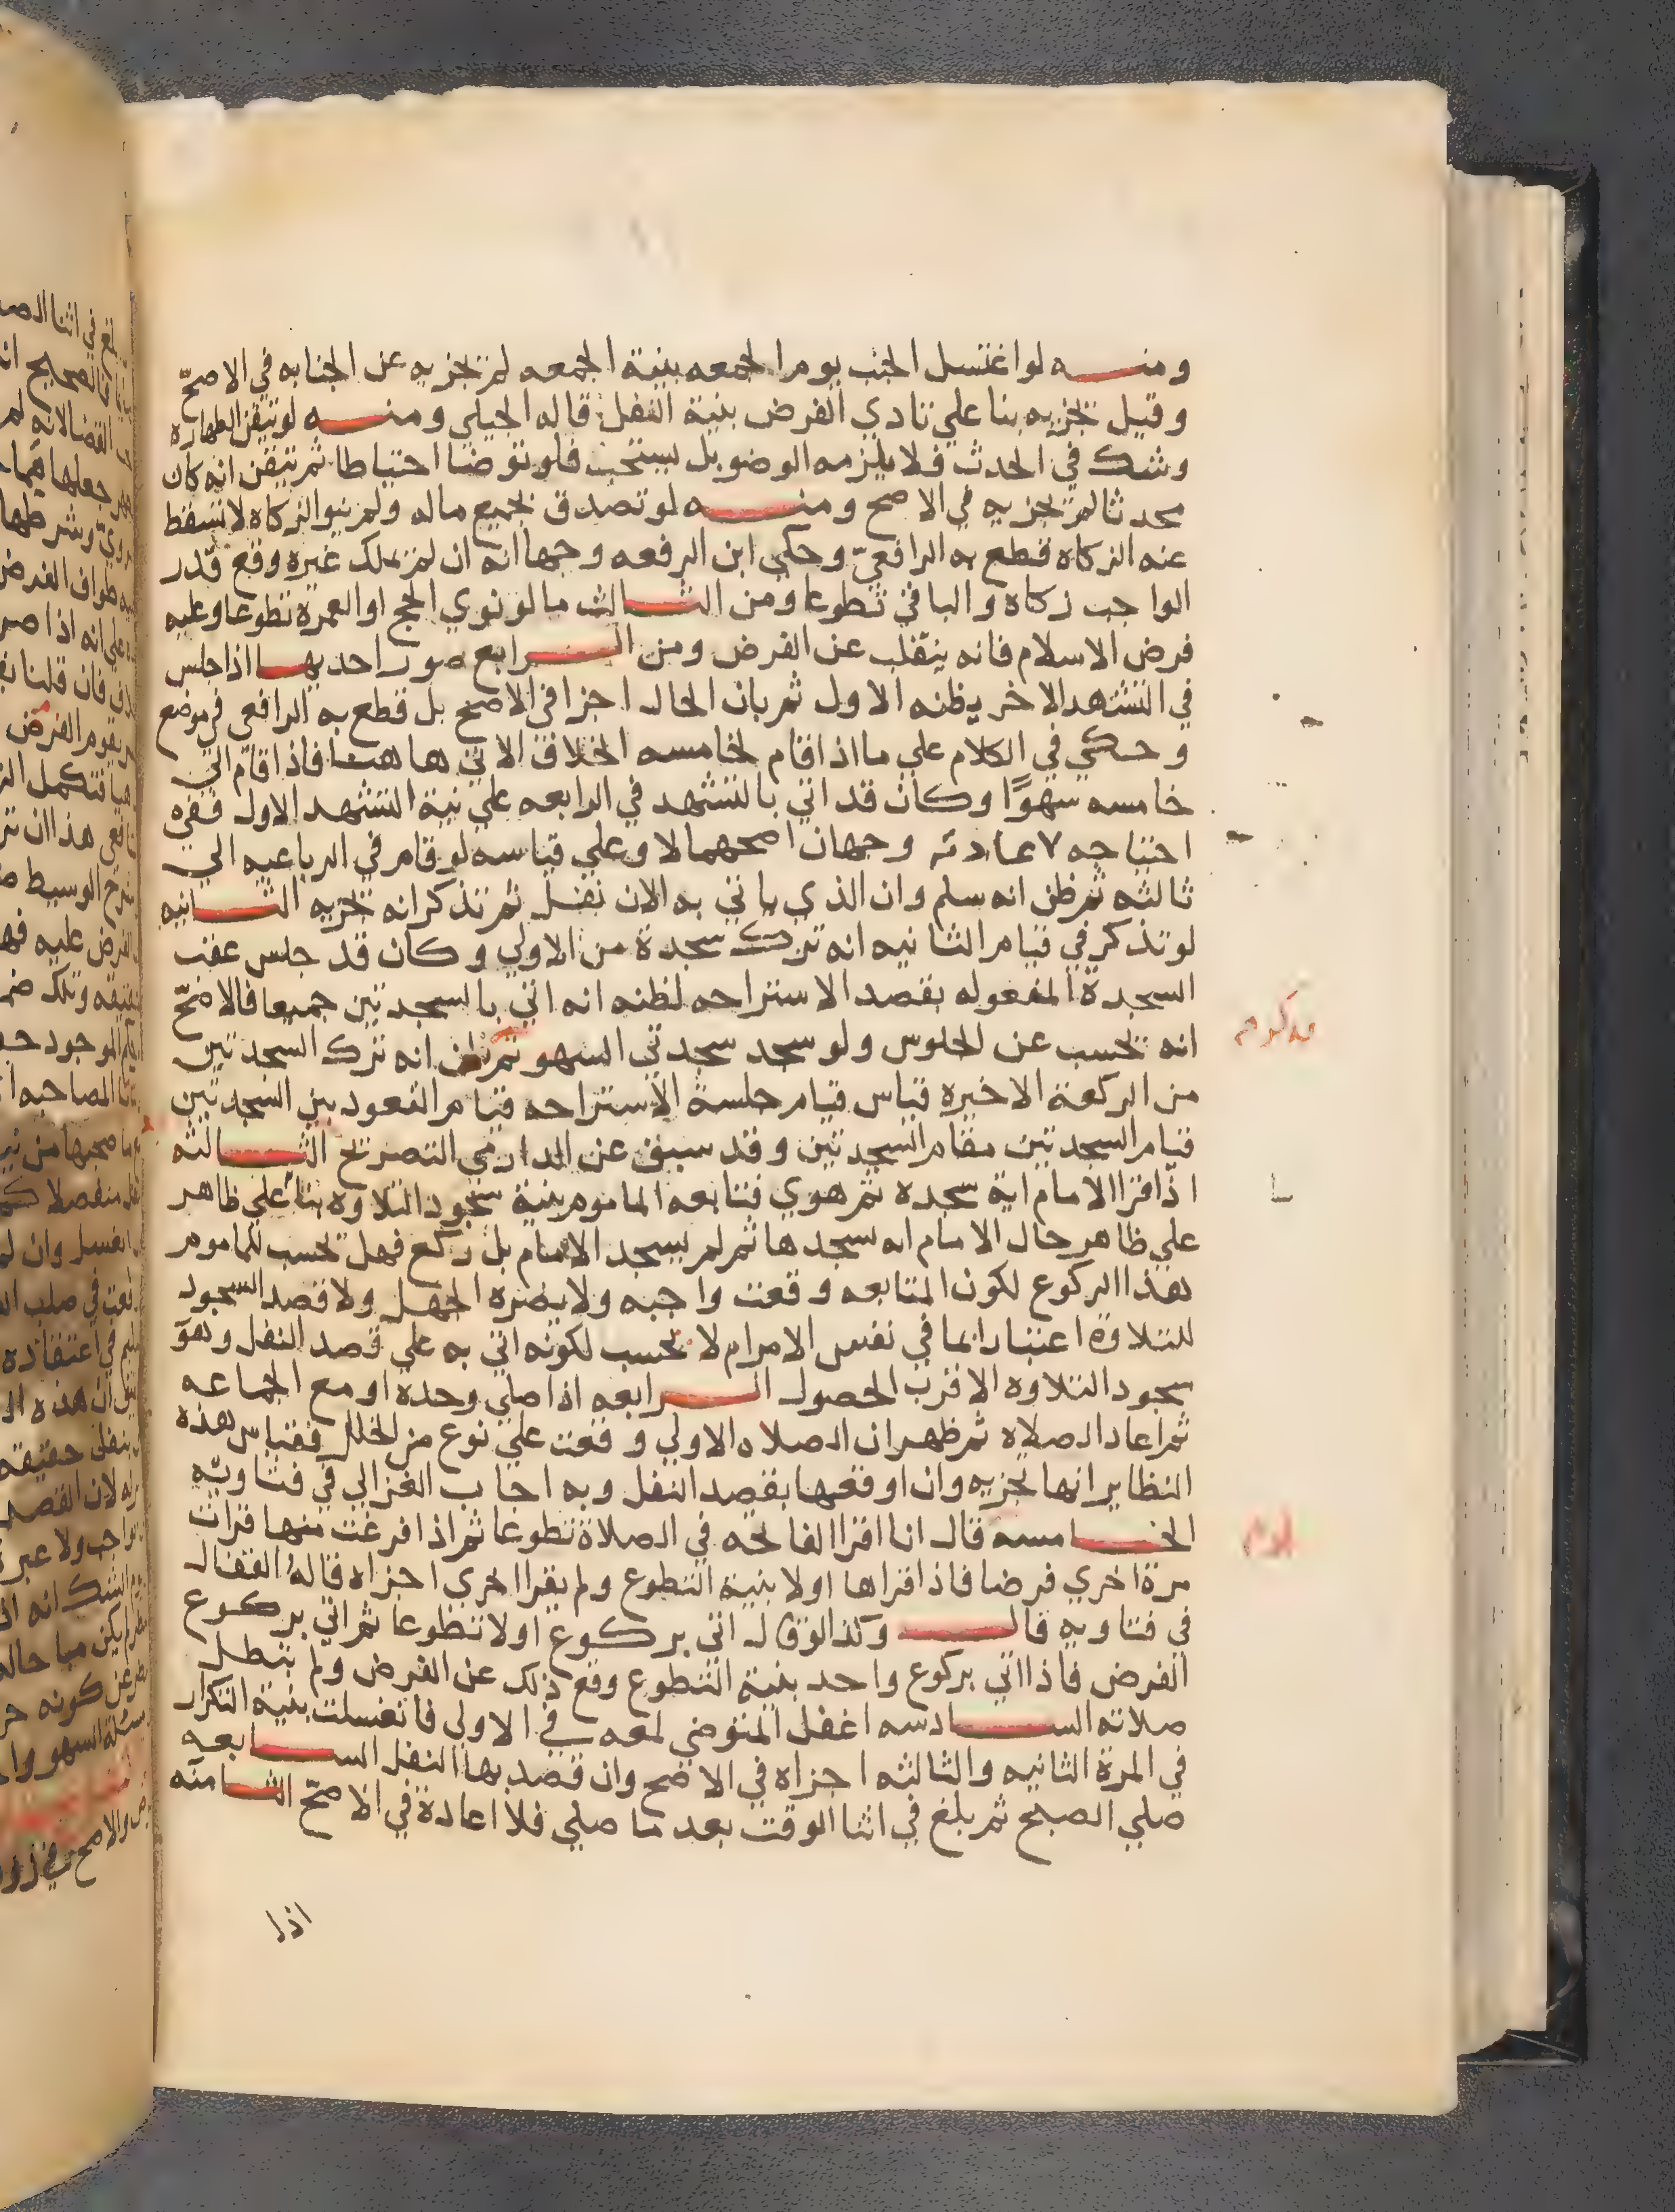 ومنه لو اغتسل الجنب يوم الجمعه بنية الجمعه لم تجزيه عن الجنابه في الاصح
وقيل تجزيه بنا علي تادي الفرض بنية النفل قاله الجيلي ومنه لو تيقن الطهاره
وشك في الحدث فلا يلزمه الوضو بل يستحب فلو توضا احتياطا ثم تيقن انه كان
محدثا لم تجزيه في الاصح ومنه لو تصدق بجميع ماله ولم ينو الزكاه لا تسقط
عنه الزكاه قطع به الرافعي وحكي ابن الرفعه وجها انه ان لم يملك غيره وقع قدر
الواجب زكاه والباقي تطوعا ومن الثالث ما لو نوي الحج او العمرة تطوعا وعليه
فرض الاسلام فانه ينقلب عن الفرض ومن الرابع صور احديها اذا جلس
في التشهد الاخر يظنه الاول ثم بان الحال اجزا في الاصح بل قطع به الرافعي في موضع
وحكي في الكلام علي ما اذا قام لخامسه الخلاف الاتي هاهنا فاذا قام الي
خامسه سهوًا وكان قد اتي بالتشهد في الرابعه علي نية التشهد الاول ففي
احتياجه لاعادته وجهان اصحهما لا وعلي قياسه لو قام في الرباعيه الي
ثالثه ثم ظن انه سلم وان الذي ياتي به الان نفل ثم تذكر انه تجزيه الثانيه
لو تذكر في قيام الثانيه انه ترك سجدة من الاولي وكان قد جلس عقب
السجدة المفعوله بقصد الاستراحه لظنه انه اتي بالسجدتين جميعا فالاصح
انه تحسب عن الجلوس ولو سجد سجدتي السهو ثم بان انه ترك السجدتين
من الركعة الاخيره قياس قيام جلسة الاستراحه قيام القعود بين السجدتين
قيام السجدتين مقام السجدتين وقد سبق عن الدارمي التصريح الثالثه
اذا قرا الامام اية سجده ثم هوي فتابعه الماموم بنية سجود التلاوه بنا علي ظاهر
علي ظاهر حال الامام انه سجدها ثم لم يسجد الامام بل ركع فهل تحسب للماموم
هذا الركوع لكون المتابعه وقعت واجبه ولا يضره الجهل ولا قصد السجود
للتلاوة اعتبارا بما في نفس الامر ام لا تحسب لكونه اتي به علي قصد النفل وهو
سجود التلاوه الاقرب الحصول الرابعه اذا صلي وحده او مع الجماعه
ثم اعاد الصلاه ثم ظهر ان الصلاه الاولي وقعت علي نوع من الخلل فقياس هذه
النظاير انها تجزيه وان اوقعها بقصد النفل وبه اجاب الغزالي في فتاويه
الخامسه قال انا اقرا الفاتحه في الصلاة تطوعا ثم اذا فرغت منها قرات
مرة اخري فرضا فاذا قراها اولا بنية التطوع ولم يقرا اخري اجزاه قاله القفال
في فتاويه قال وكذا لو قال اتي بركوع اولا تطوعا ثم اتي بركوع
الفرض فاذا اتي بركوع واحد بنية التطوع وقع ذلك عن الفرض ولم تبطل
صلاته السادسه اغفل المتوضي لمعه في الاولي فانغسلت بنية التكرار
في المرة الثانيه والثالثه اجزاه في الاصح وان قصد بها النفل السابعه
صلي الصبح ثم بلغ في اثنا الوقت بعد ما صلي فلا اعادة في الاصح الثامنه
اذا